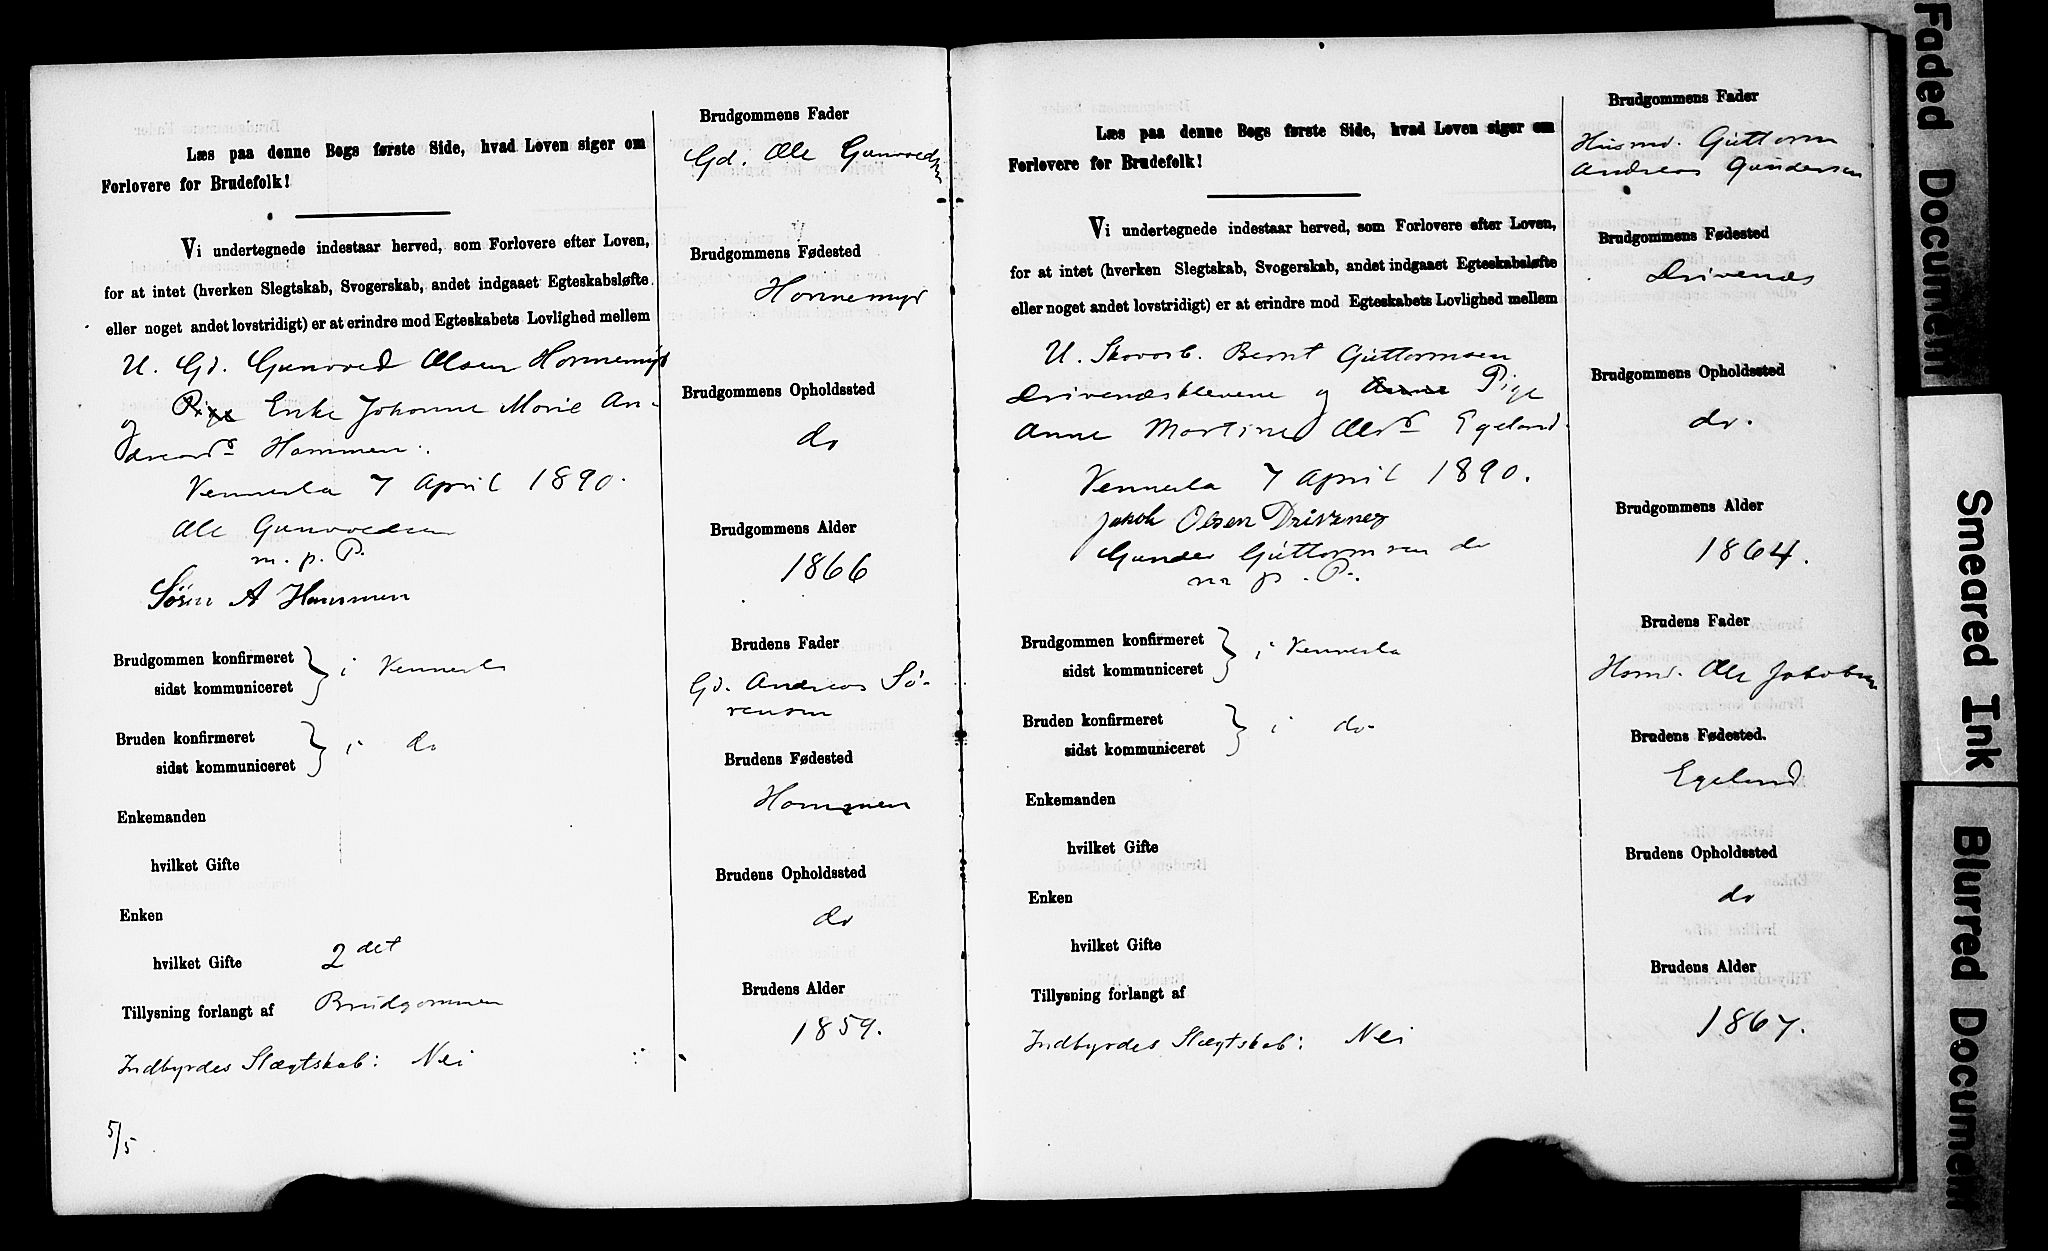 Læs paa denne Bogs første Side, hvad Loven siger om
Forlovere for Brudefolk!
Vi undertegnede indestaar herved, som Forlovere efter Loven,
for at intet (hverken Slegtskab, Svogerskab, andet indgaaet Egteskabsløfte
eller noget andet lovstridigt) er at erindre mod Egteskabets Lovlighed mellem
U. Gd. Gunvald Olsen Honnemyr
og Pige Enke Johanne Marie An-
dreasds Hommen.
Vennesla 7 April 1890.
Ole Gunvaldsen
m. p. P.
Søren A Hommen
Brudgommen konfirmeret
sidst kommuniceret
i Vennesla
Bruden konfirmeret
sidst kommuniceret
i do
Enkemanden
hvilket Gifte
Enken
hvilket Gifte 2det
Tillysning forlangt af Brudgommen
Indbyrdes Slægtskab: Nei
5/5
Brudgommens Fader
Gd. Ole Gunvaldsen
Brudgommens Fødested
Honnemyr
Brudgommens Opholdssted
do
Brudgommens Alder
1866
Brudens Fader
Gd. Andreas Sø-
rensen
Brudens Fødested
Hommen
Brudens Opholdssted
do
Brudens Alder
1859.
Læs paa denne Bogs første Side, hvad Loven siger om
Forlovere for Brudefolk!
Vi undertegnede indestaar herved, som Forlovere efter Loven,
for at intet (hverken Slegtskab, Svogerskab, andet indgaaet Egteskabsløfte
eller noget andet lovstridigt) er at erindre mod Egteskabets Lovlighed mellem
U. Skovarb. Bernt Guttormsen
Drivenesklevene og Anne Pige
Anne Martine Olsd Egeland.
Vennesla 7 April 1890.
Jakob Olsen Drivenes
Gunder Guttormsen do
m p. P.
Brudgommen konfirmeret
sidst kommuniceret
i Vennesla
Bruden konfirmeret
sidst kommuniceret
i do
Enkemanden
hvilket Gifte
Enken
hvilket Gifte
Tillysning forlangt af
Indbyrdes Slægtskab: Nei
Brudgommens Fader
Husmd. Guttorm
Andreas Gundersen
Brudgommens Fødested
Drivenes
Brudgommens Opholdssted
do.
Brudgommens Alder
1864.
Brudens Fader
Ole Jakobsen
Brudens Fødested.
Egeland
Brudens Opholdssted
do
Brudens Alder
1867.
Faded Document
Smeared Ink
Blurred Document